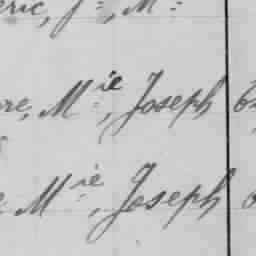 eric, J=, M=
re, M^ie, Joseph
M^ie, Joseph